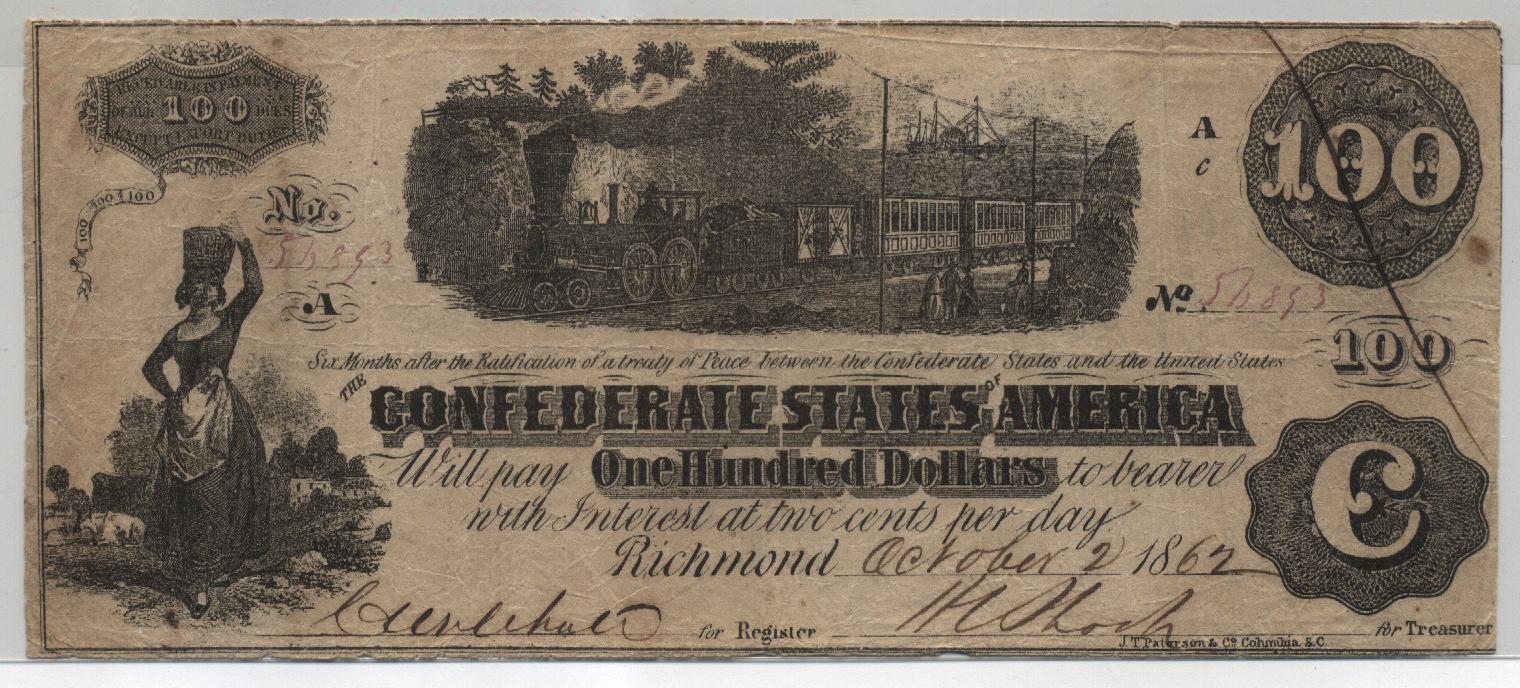 RECEIVABLE IN PAYMENT
OF ALL 100 DUES
EXCEPT EXPORT DUTIES
100 100 100
No.
A
A
c
100
No
100
Six Months after the Ratification of a treaty of Peace between the Confederate States and the United States
THE CONFEDERATE STATES OF AMERICA
Will pay One Hundred Dollars to bearer
with Interest at two cents per day
Richmond October 2 1862
C
for Register
for Treasurer
J. T. Paterson & Co Columbia S.C.